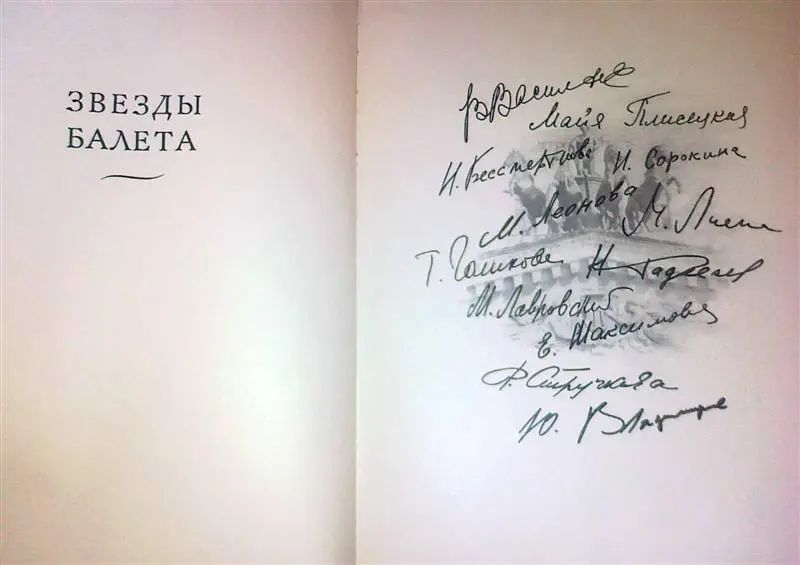 ЗВЕЗДЫ
БАЛЕТА
В Васильев
Майя Плисецкая
Н. Бессмертнова Н. Сорокина
М. Леонова М. Лиепа
Т. Голикова
М. Лавровский
Е. Максимова
Р. Стручкова
Ю. Владимиров